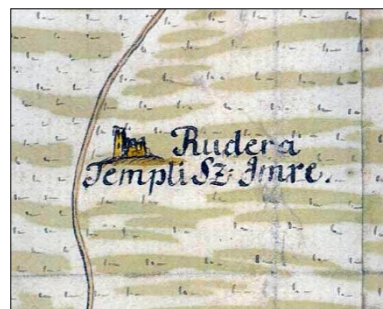 Rudera
Templi Sz: Imre.